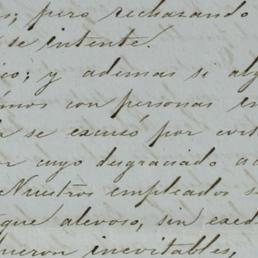 s; pero rechazando
se intente.
io; y ademas si alg
imos con personas en
se escusó por evit
cuyo desgraciado
Nuestros empleados s
que alevoso, sin esced
ueron inevitables,